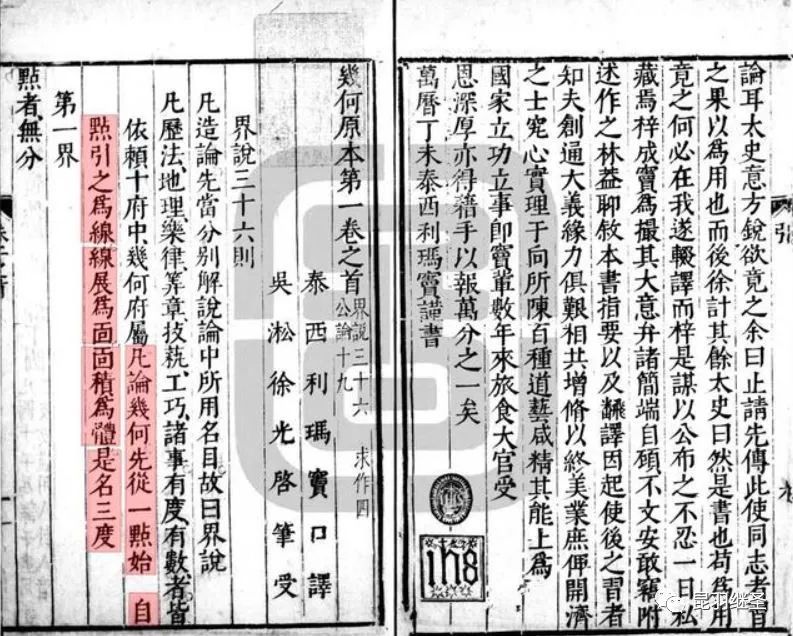 論耳太史意方銳欲竟之余曰止請先傳此使同志者習
之果以為用也而後徐計其餘太史曰然是書也苟為用
竟之何必在我遂輟譯而梓是謀以公布之不忍一日私
藏焉梓成竇為撮其大意弁諸簡端自顧不文安敢竊附
述作之林葢聊敘本書指要以及翻譯因起使後之習者
知夫創通大義緣力俱艱相共增脩以終美業庶俾開濟
之士究心實理于向所陳百種道藝咸精其能上為
國家立功立事即竇輩數年來旅食大官受
恩深厚亦得藉手以報萬分之一矣
萬曆丁未泰西利瑪竇謹書
IHS
引
幾何原本第一卷之首
界說三十六
公論十九
求作四
泰西利瑪竇口譯
吳淞徐光啓筆受
界說三十六則
凡造論先當分別解說論中所用名目故曰界說
凡歷法、地理、樂律、筭章、技蓺、工巧、諸事有度、有數者皆
依賴十府中、幾何府屬凡論幾何先從一點始自
點引之為線線展為面面積為體是名三度
第一界
點者、無分
昆羽继圣